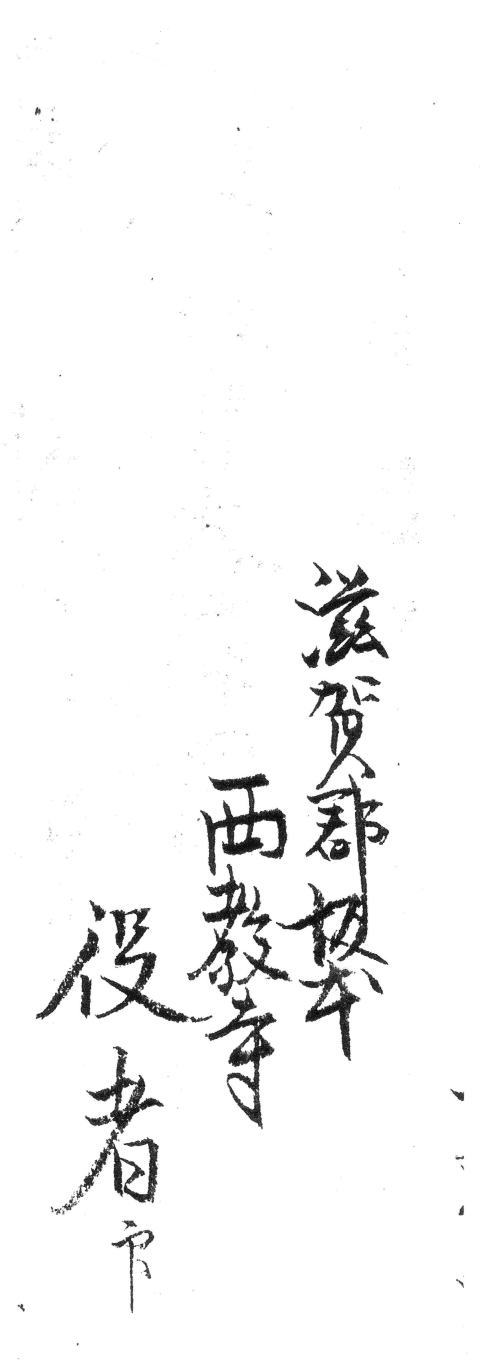 滋賀郡坂本
西教寺
役者印